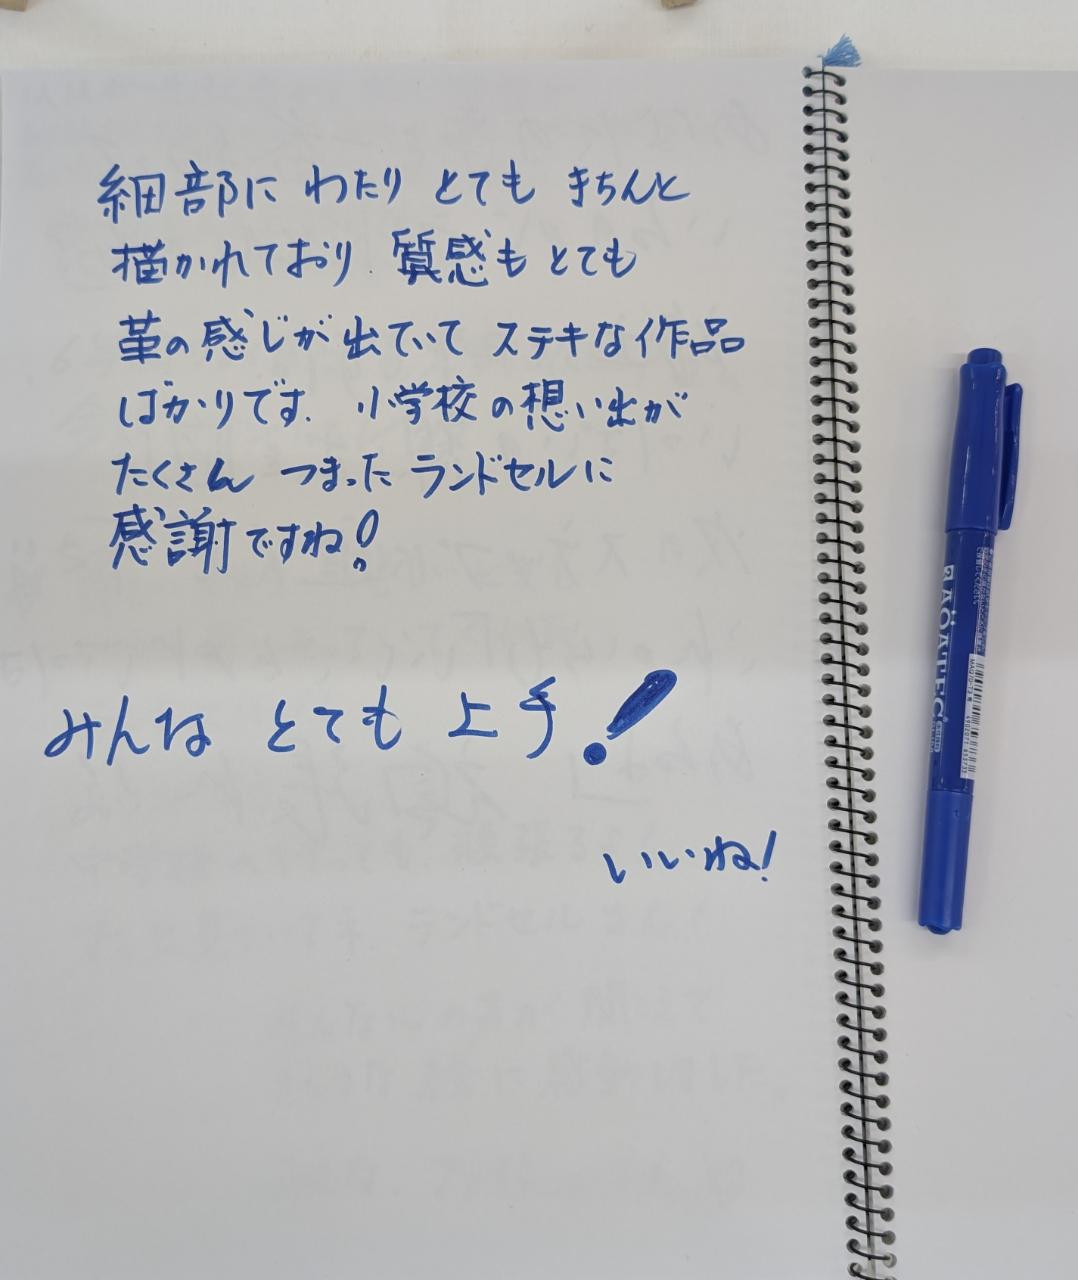 細部に わたり とても きちんと
描かれており 質感も とても
革の感じが 出ていて ステキな作品
ばかりです. 小学校の想い出が
たくさん つまった ランドセルに
感謝ですね!
みんな とても 上手!
いいね!